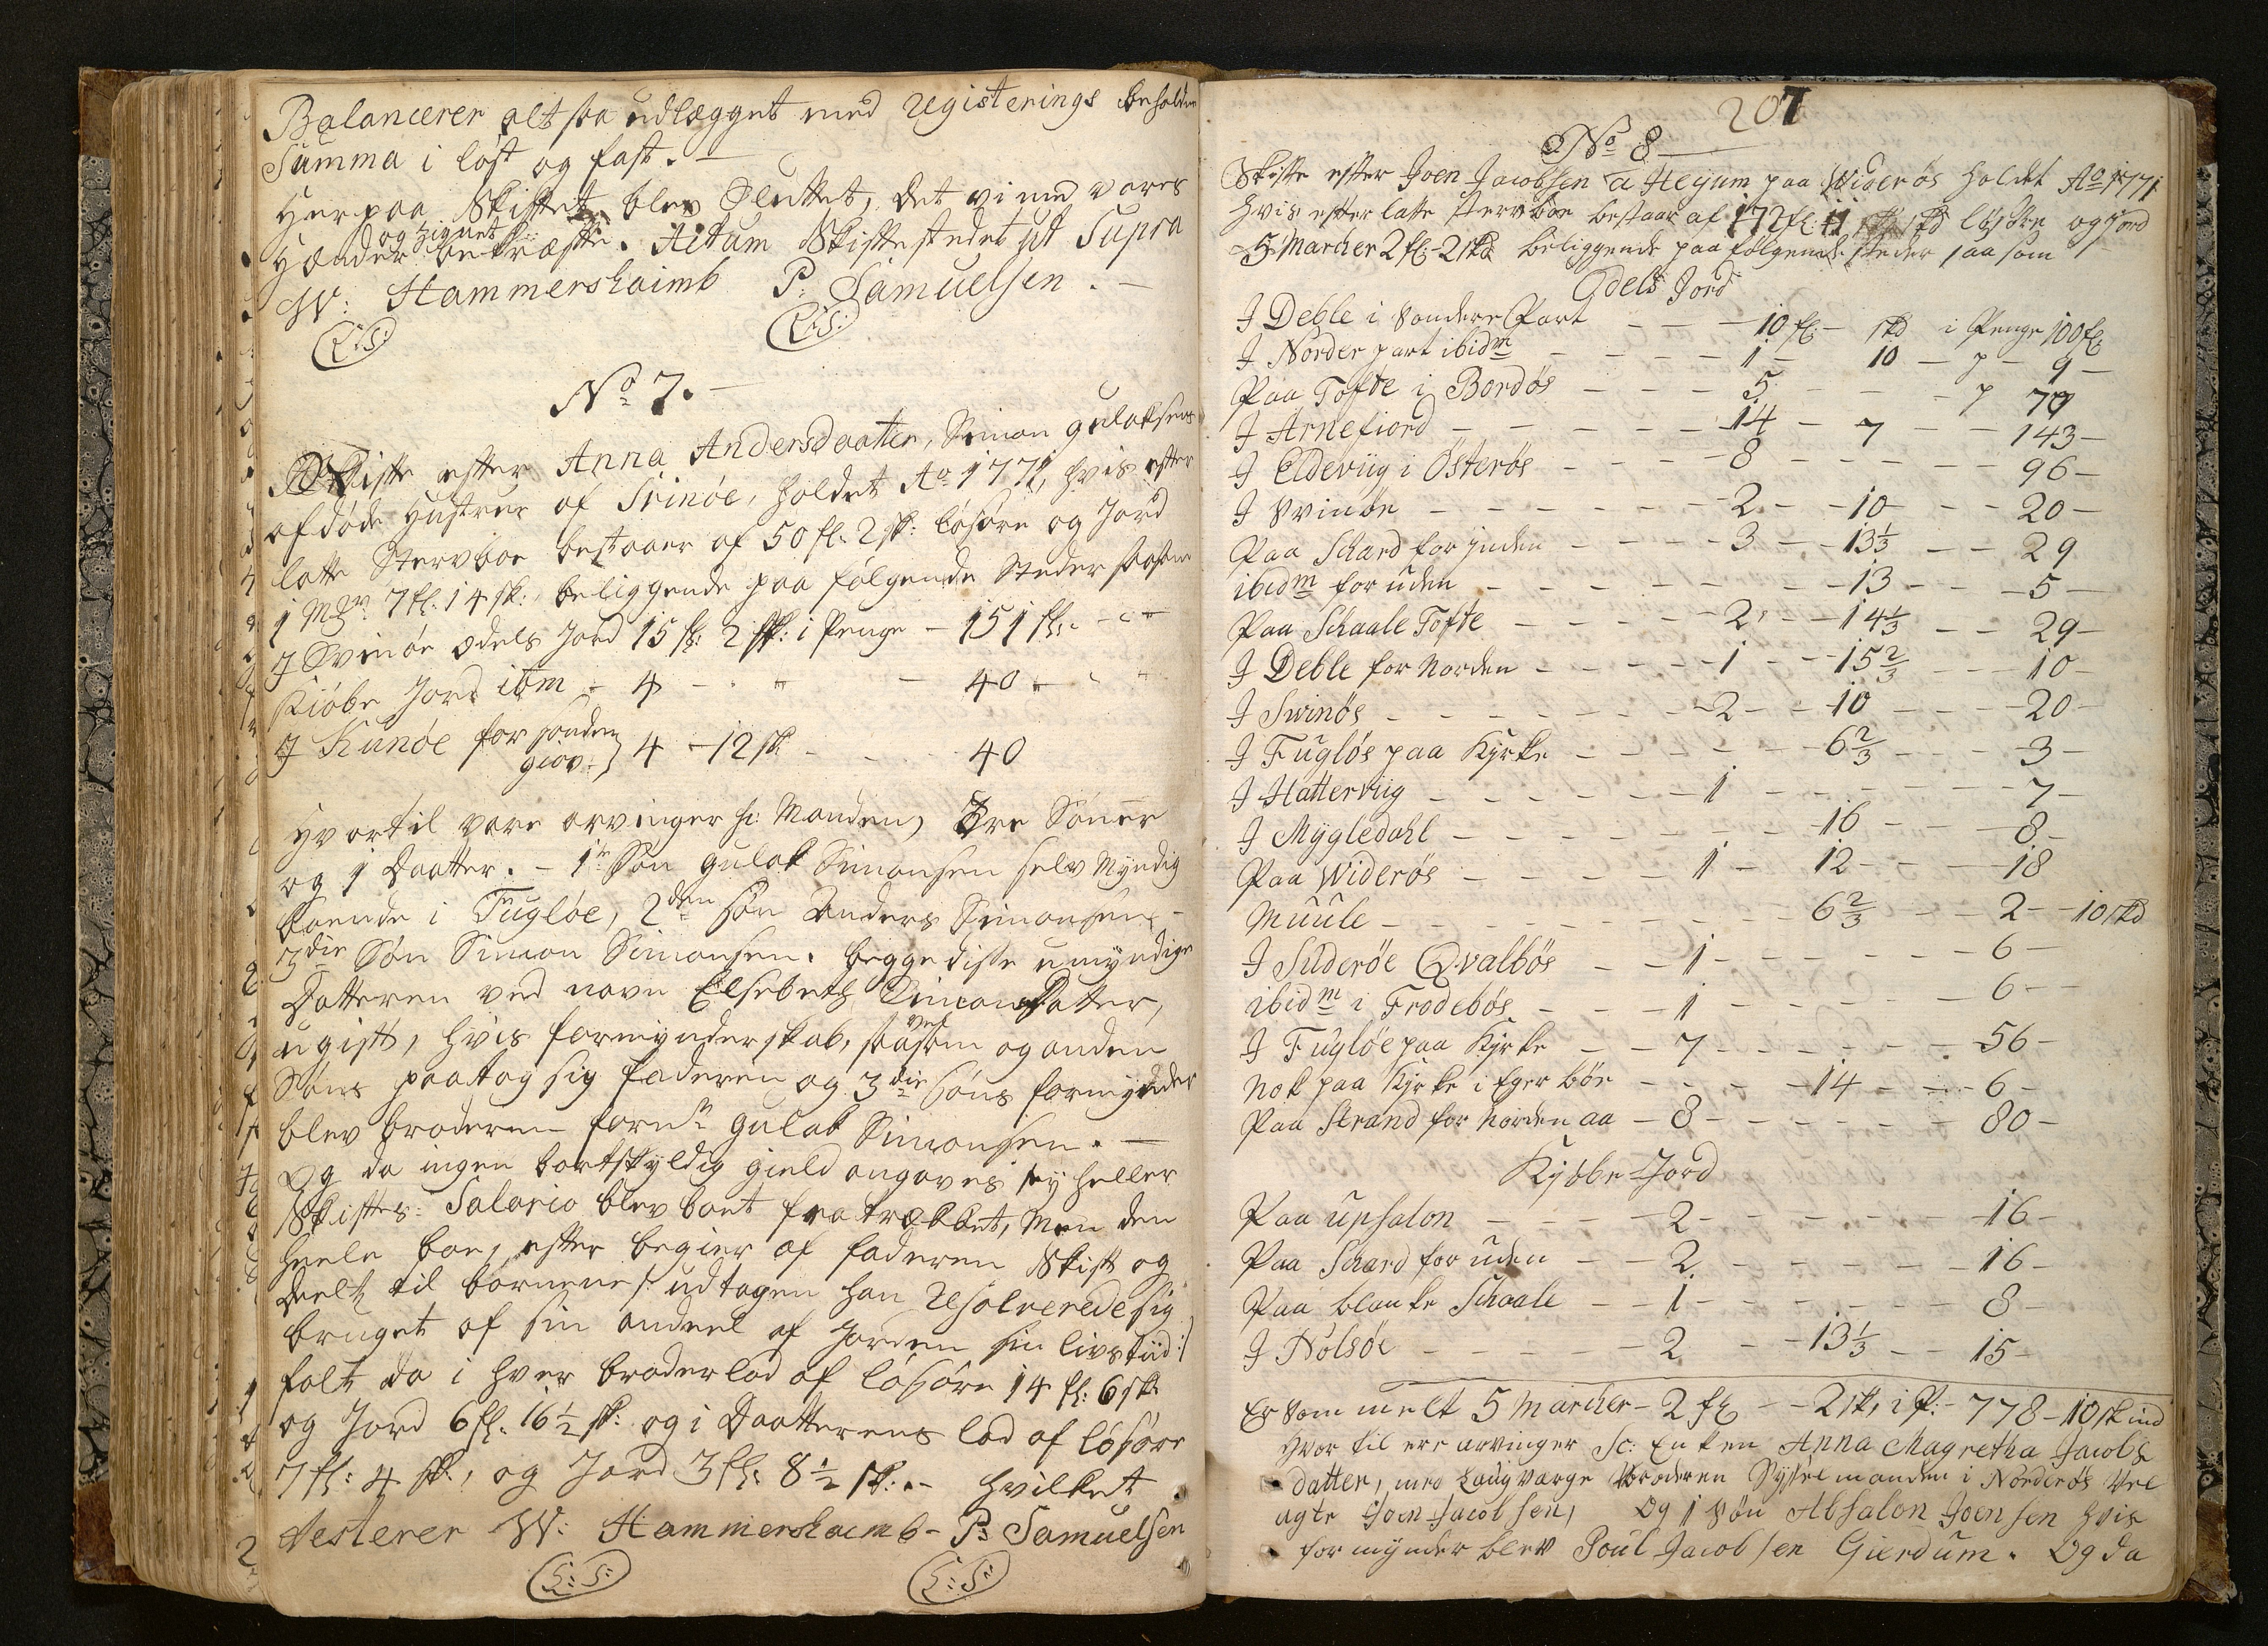 Balancerer altsaa udlægget med Registerings beholdne
Summa i løst og fast. —
Her paa Skiftet blev Sluttet, det vi med vores
og Zignet
Hænder bekræfte. Actum Skiftestedet ut Supra
W: Hammershaimb P: Samuelsen. —
(L:S:) (L:S:)
No 7. —
Skifte efter Anna Andersdaatter, Simon Gulaksens
afdøde Hustrue af Svinöe, holdet Ao 1771, hvis efter
latte Stervboe bestaaer af 50 fl: 2 sk: løsöre og Jord
1 Mk 7 fl: 14 sk: beliggende paa følgende Steder saasom
I Svinöe Odels Jord 15 fl: 2 sk: i Penge — 151 fl: - "
Kiöbe Jord ibm - 4 - . " — 40 " - "
I Kunöe for sønden
giov. } 4 — 12 sk - - 40
Hvortil vare arvinger sc: Manden, Tre Sönner
og 1 Daatter. — 1te Sön Gulak Simonsen selv Myndig
boende i Fuglöe, 2den Sön Anders Simonsen, —
3die Sön Simon Simonsen. begge disse umyndige
Datteren ved navn Elsebeth Simonsdatter,
ugift, hvis formynderskab, saasom og anden
Söns paatog sig faderen og 3die Söns formynder
blev broderen forne Gulak Simonsen. —
Og da ingen bortskyldig gield angaves ey heller
Skiftes: Salario blev boet fratrækket, Men den
heele boe, efter begier af faderen Skift og
deelt til börnene /: udtagen han Resolverede sig
bruget af sin andeel af Jorden sin livstiid :/
falt da i hver broderlod af løsöre 14 fl: 6 sk:
og Jord 6 fl: 16½ sk: og i Daatterens lod af løsöre
7 fl: 4 sk:, og Jord 3 fl: 8½ sk: . — hvilket
Testerer W: Hammershaimb - P: Samuelsen
(L:S:) (L:S:)
207
No 8
Skifte efter Joen Jacobsen a Heyum paa Widerös holdet Ao 1771
hvis efterlatte Stervboe bestaar af 172 fl: 11 skd løsöre og Jord
5 Marcher 2 fl: 2 skd beliggende paa følgende steder saasom
Odels Jord
I Deble i Söndere Part — — — 10 fl: — skd i Penge 100 fl:
I Norder part ibidm — — — 1 — 10 — 9 —
Paa Tofte i Bordös — — — 5 — — 70
I Arnefiord — — — — — 14 — 7 — — 143 —
I Eldeviig i Österös — — — 8 — — — — 96 —
I Svinöe — — — — — 2 — — 10 — — 20 —
Paa Schard for Jnden — — — 3 — — 13⅓ — — 29
ibidm for uden — — — — — 13 — — 5 —
Paa Schaale Tofte — — — — 2 — — 14⅓ — — 29 —
I Deble for Norden — — — — 1 — — 15⅔ — — 10 —
I Svinös — — — — — — 2 — — 10 — — — 20 —
I Fuglös paa Kyrke — — — — 6⅔ — — — 3 —
I Hatterviig — — — — — 1 — — — — — 7 —
I Mygledahl — — — — — — 16 — — — 8 —
Paa Widerös — — — — 1 — 12 — — — 18
Muule — — — — — — 6⅔ — — 2 — 10 skd
I Süderöe Qvalbös — — 1 — — — — — 6 —
ibidm i Frodebös — — — 1 — — — — — 6 —
I Fuglöe paa Kyrke — — 7 — — — — — 56 —
nok paa Kyrke i Eger böe — — — 14 — — 6 —
Paa Strand for Norden aa — 8 — — — — — 80 —
Kyöbe Jord
Paa upsalon — — — — 2 — — — — — 16 —
Paa Schard for uden — — 2 — — — — — 16 —
Paa blanke Schaale — — 1 — — — — — 8 —
I Nolsöe — — — — — 2 — — 13⅓ — — 15 —
Er som melt 5 Marcher — 2 fl: — — 2 sk, i P: — 778 — 10 sk ind
Hvor til ere arvinger Sc: Enken Anna Magretha Jacobs
datter, med Laugværge Broderen Sysselmanden i Norderös Vel
agte Joen Jacobsen, Og 1 Sön Absalon Joensen hvis
formynder blev Poul Jacobsen Gierdum. Og da